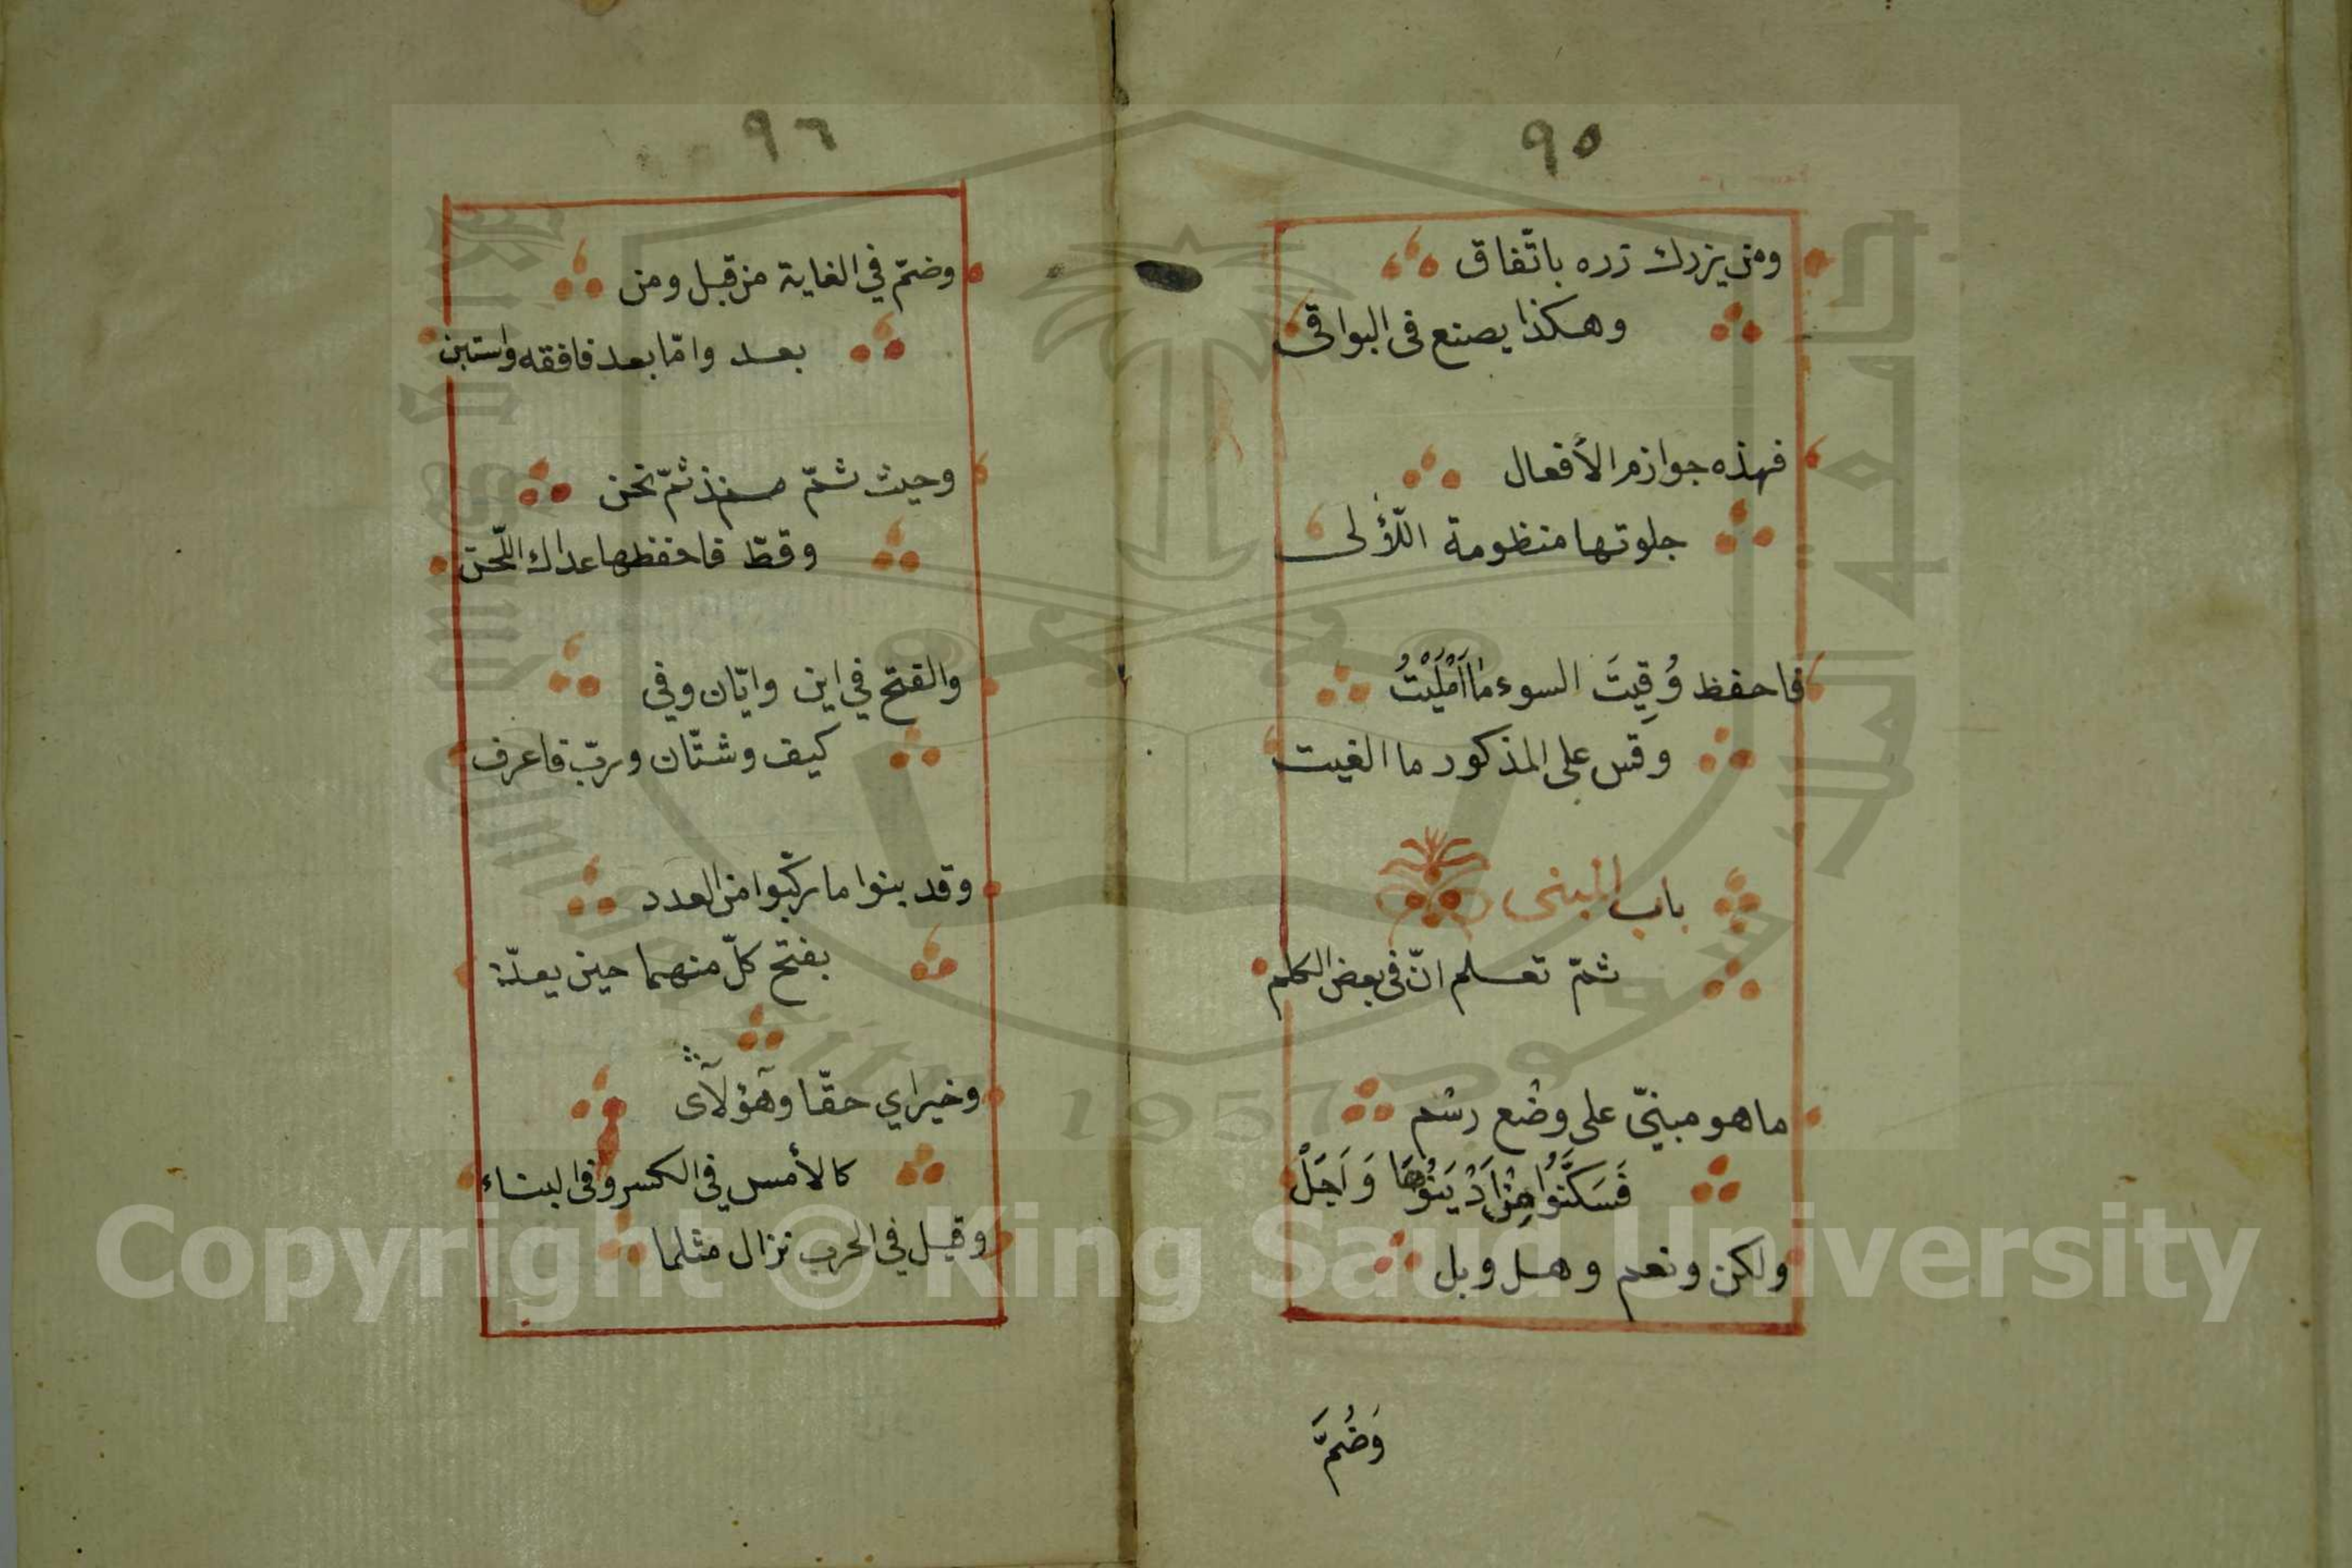 ٩٥
ومن يزرك زره باتّفاق
وهكذا يصنع فى البواقى
فهذه جوازم الأفعال
جلوتها منظومة اللّؤلى
فاحفظ وُقِيتَ السوء ما اَمْلَيْتُ
وقس على المذكور ما الغيت
باب المبنى
ثمّ تعلم انّ فى بعض الكلم
ما هو مبنىّ على وضع رسم
فَسَكَّنُوا مِنْ اِذْ بَنَوْهَا وَاَجَلْ
ولكن ونعم وهل وبل
وَضُمَّ
٩٦
وضمّ في الغاية من قبل ومن
بعد وامّا بعد فافقه واستبن
وحيث ثمّ منذ ثمّ نحن
وقطّ فاحفظها عداك اللّحن
والفتح في اين وايّان وفي
كيف وشتّان وربّ فاعرف
وقد بنوا ما ركّبوا من العدد
بفتح كلّ منهما حين يعدّ
وخيراي حقّا وهؤلآى
كالأمس في الكسر وفى البناء
وقيل في الحرب نزال مثلما
Copyright © King Saud University
King Saud University
1957
جامعة الملك سعود